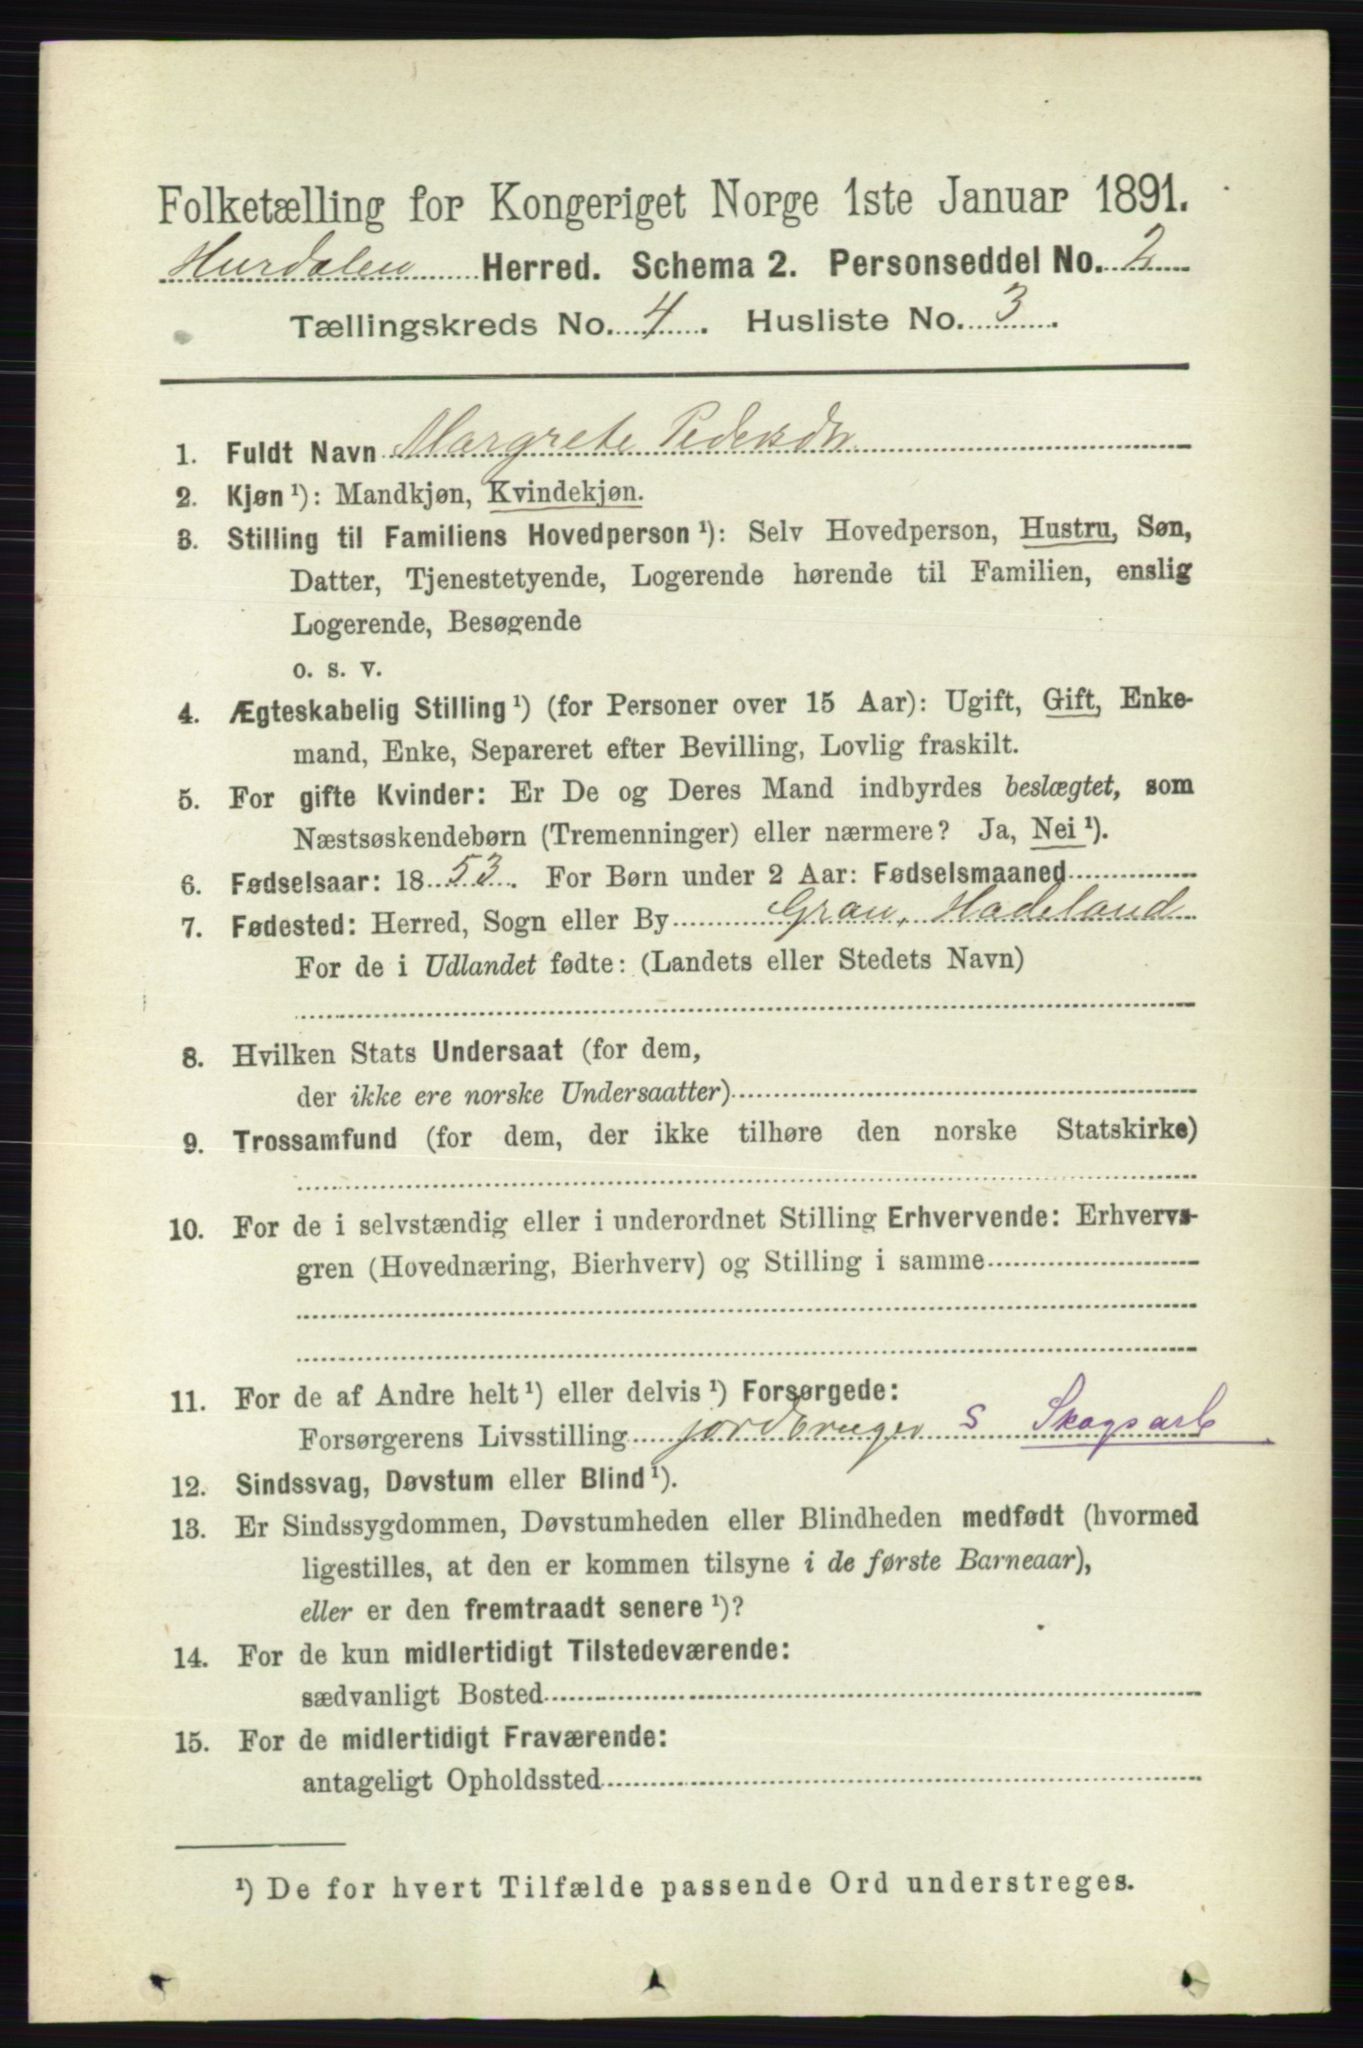 Folketælling for Kongeriget Norge 1ste Januar 1891.
Hurdalen Herred. Schema 2. Personseddel No. 2
Tællingskreds No. 4. Husliste No. 3.
1. Fuldt Navn Margrete Pedersdtr
2. Kjøn ¹): Mandkjøn, Kvindekjøn.
3. Stilling til Familiens Hovedperson ¹): Selv Hovedperson, Hustru, Søn,
Datter, Tjenestetyende, Logerende hørende til Familien, enslig
Logerende, Besøgende
o. s. v.
4. Ægteskabelig Stilling ¹) (for Personer over 15 Aar): Ugift, Gift, Enke-
mand, Enke, Separeret efter Bevilling, Lovlig fraskilt.
5. For gifte Kvinder: Er De og Deres Mand indbyrdes beslægtet, som
Næstsøskendebørn (Tremenninger) eller nærmere? Ja, Nei ¹).
6. Fødselsaar: 1853. For Børn under 2 Aar: Fødselsmaaned
7. Fødested: Herred, Sogn eller By Gran, Hadeland
For de i Udlandet fødte: (Landets eller Stedets Navn)
8. Hvilken Stats Undersaat (for dem,
der ikke ere norske Undersaatter)
9. Trossamfund (for dem, der ikke tilhøre den norske Statskirke)
10. For de i selvstændig eller i underordnet Stilling Erhvervende: Erhvervs-
gren (Hovednæring, Bierhverv) og Stilling i samme
11. For de af Andre helt ¹) eller delvis ¹) Forsørgede:
Forsørgerens Livsstilling jordbruger S Skogsarb
12. Sindssvag, Døvstum eller Blind ¹).
13. Er Sindssygdommen, Døvstumheden eller Blindheden medfødt (hvormed
ligestilles, at den er kommen tilsyne i de første Barneaar),
eller er den fremtraadt senere ¹)?
14. For de kun midlertidigt Tilstedeværende:
sædvanligt Bosted
15. For de midlertidigt Fraværende:
antageligt Opholdssted
¹) De for hvert Tilfælde passende Ord understreges.